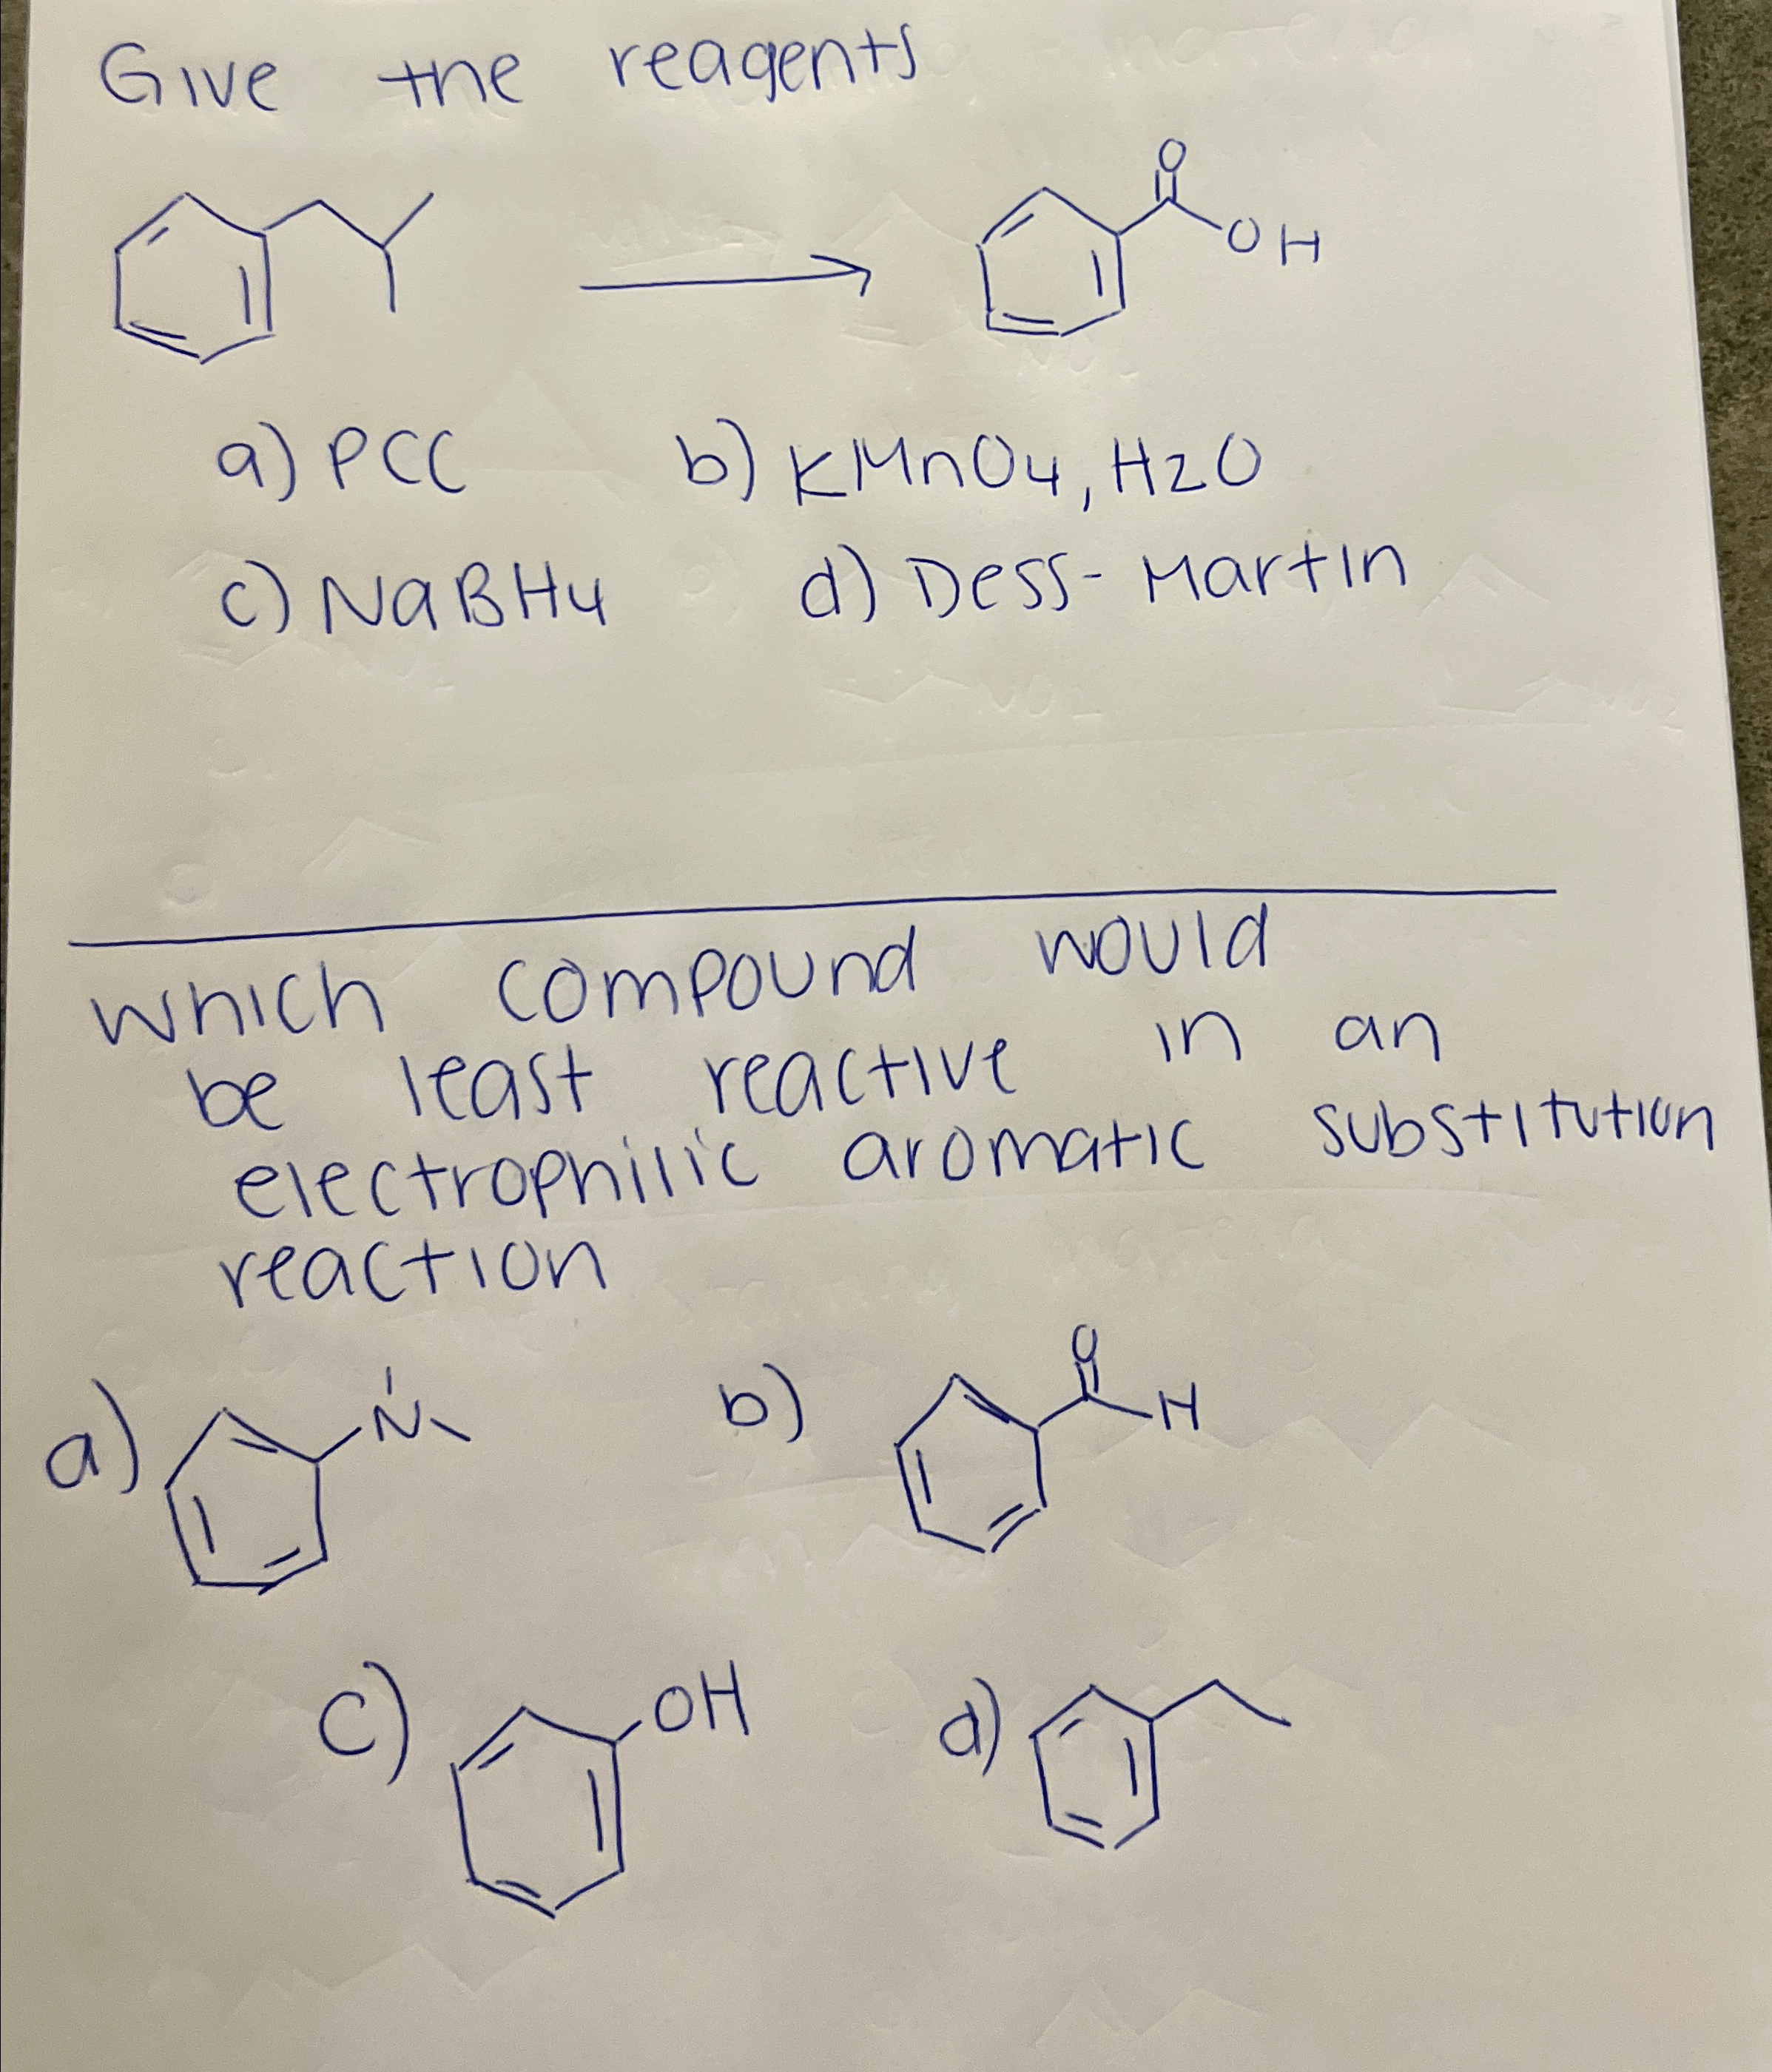 Give the reagents
O
OH
a) PCC b) KMnO4, H2O
c) NaBH4 d) Dess-Martin
which compound would
be least reactive in an
electrophilic aromatic substitution
reaction
a) N b) O H
c) OH d)